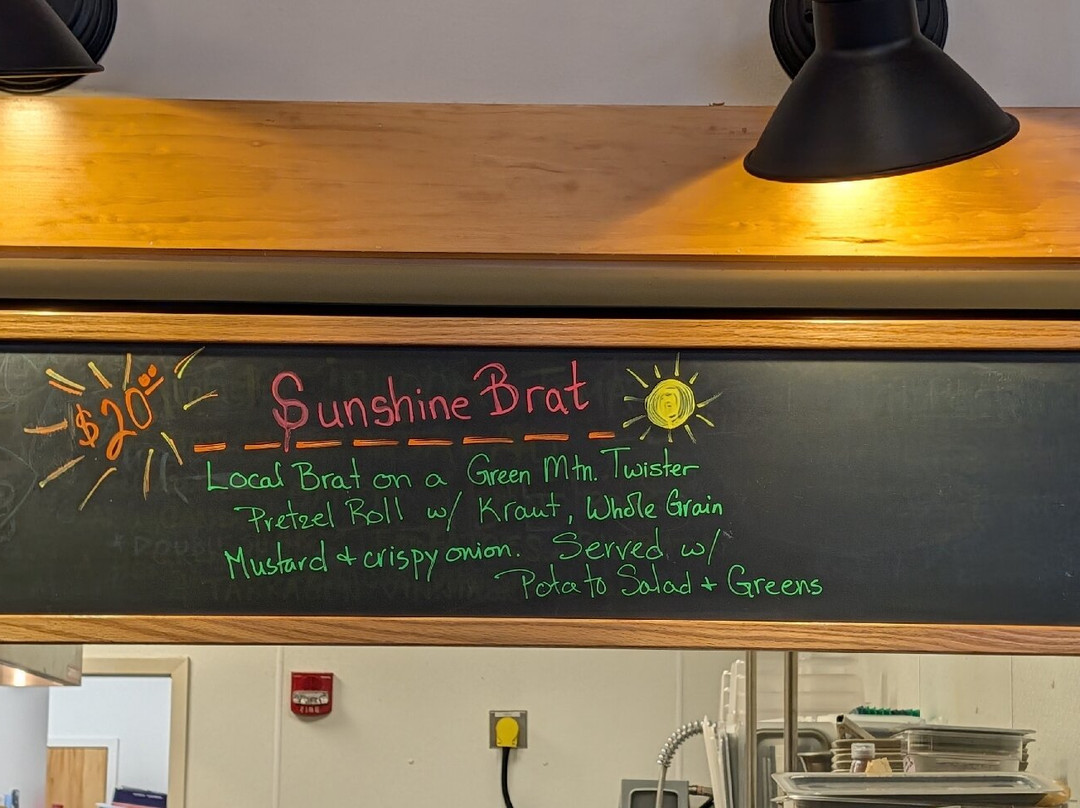 $20.00
Sunshine Brat
Local Brat on a Green Mtn. Twister
Pretzel Roll w/ Kraut, Whole Grain
Mustard + crispy onion. Served w/
Potato Salad + Greens
FIRE